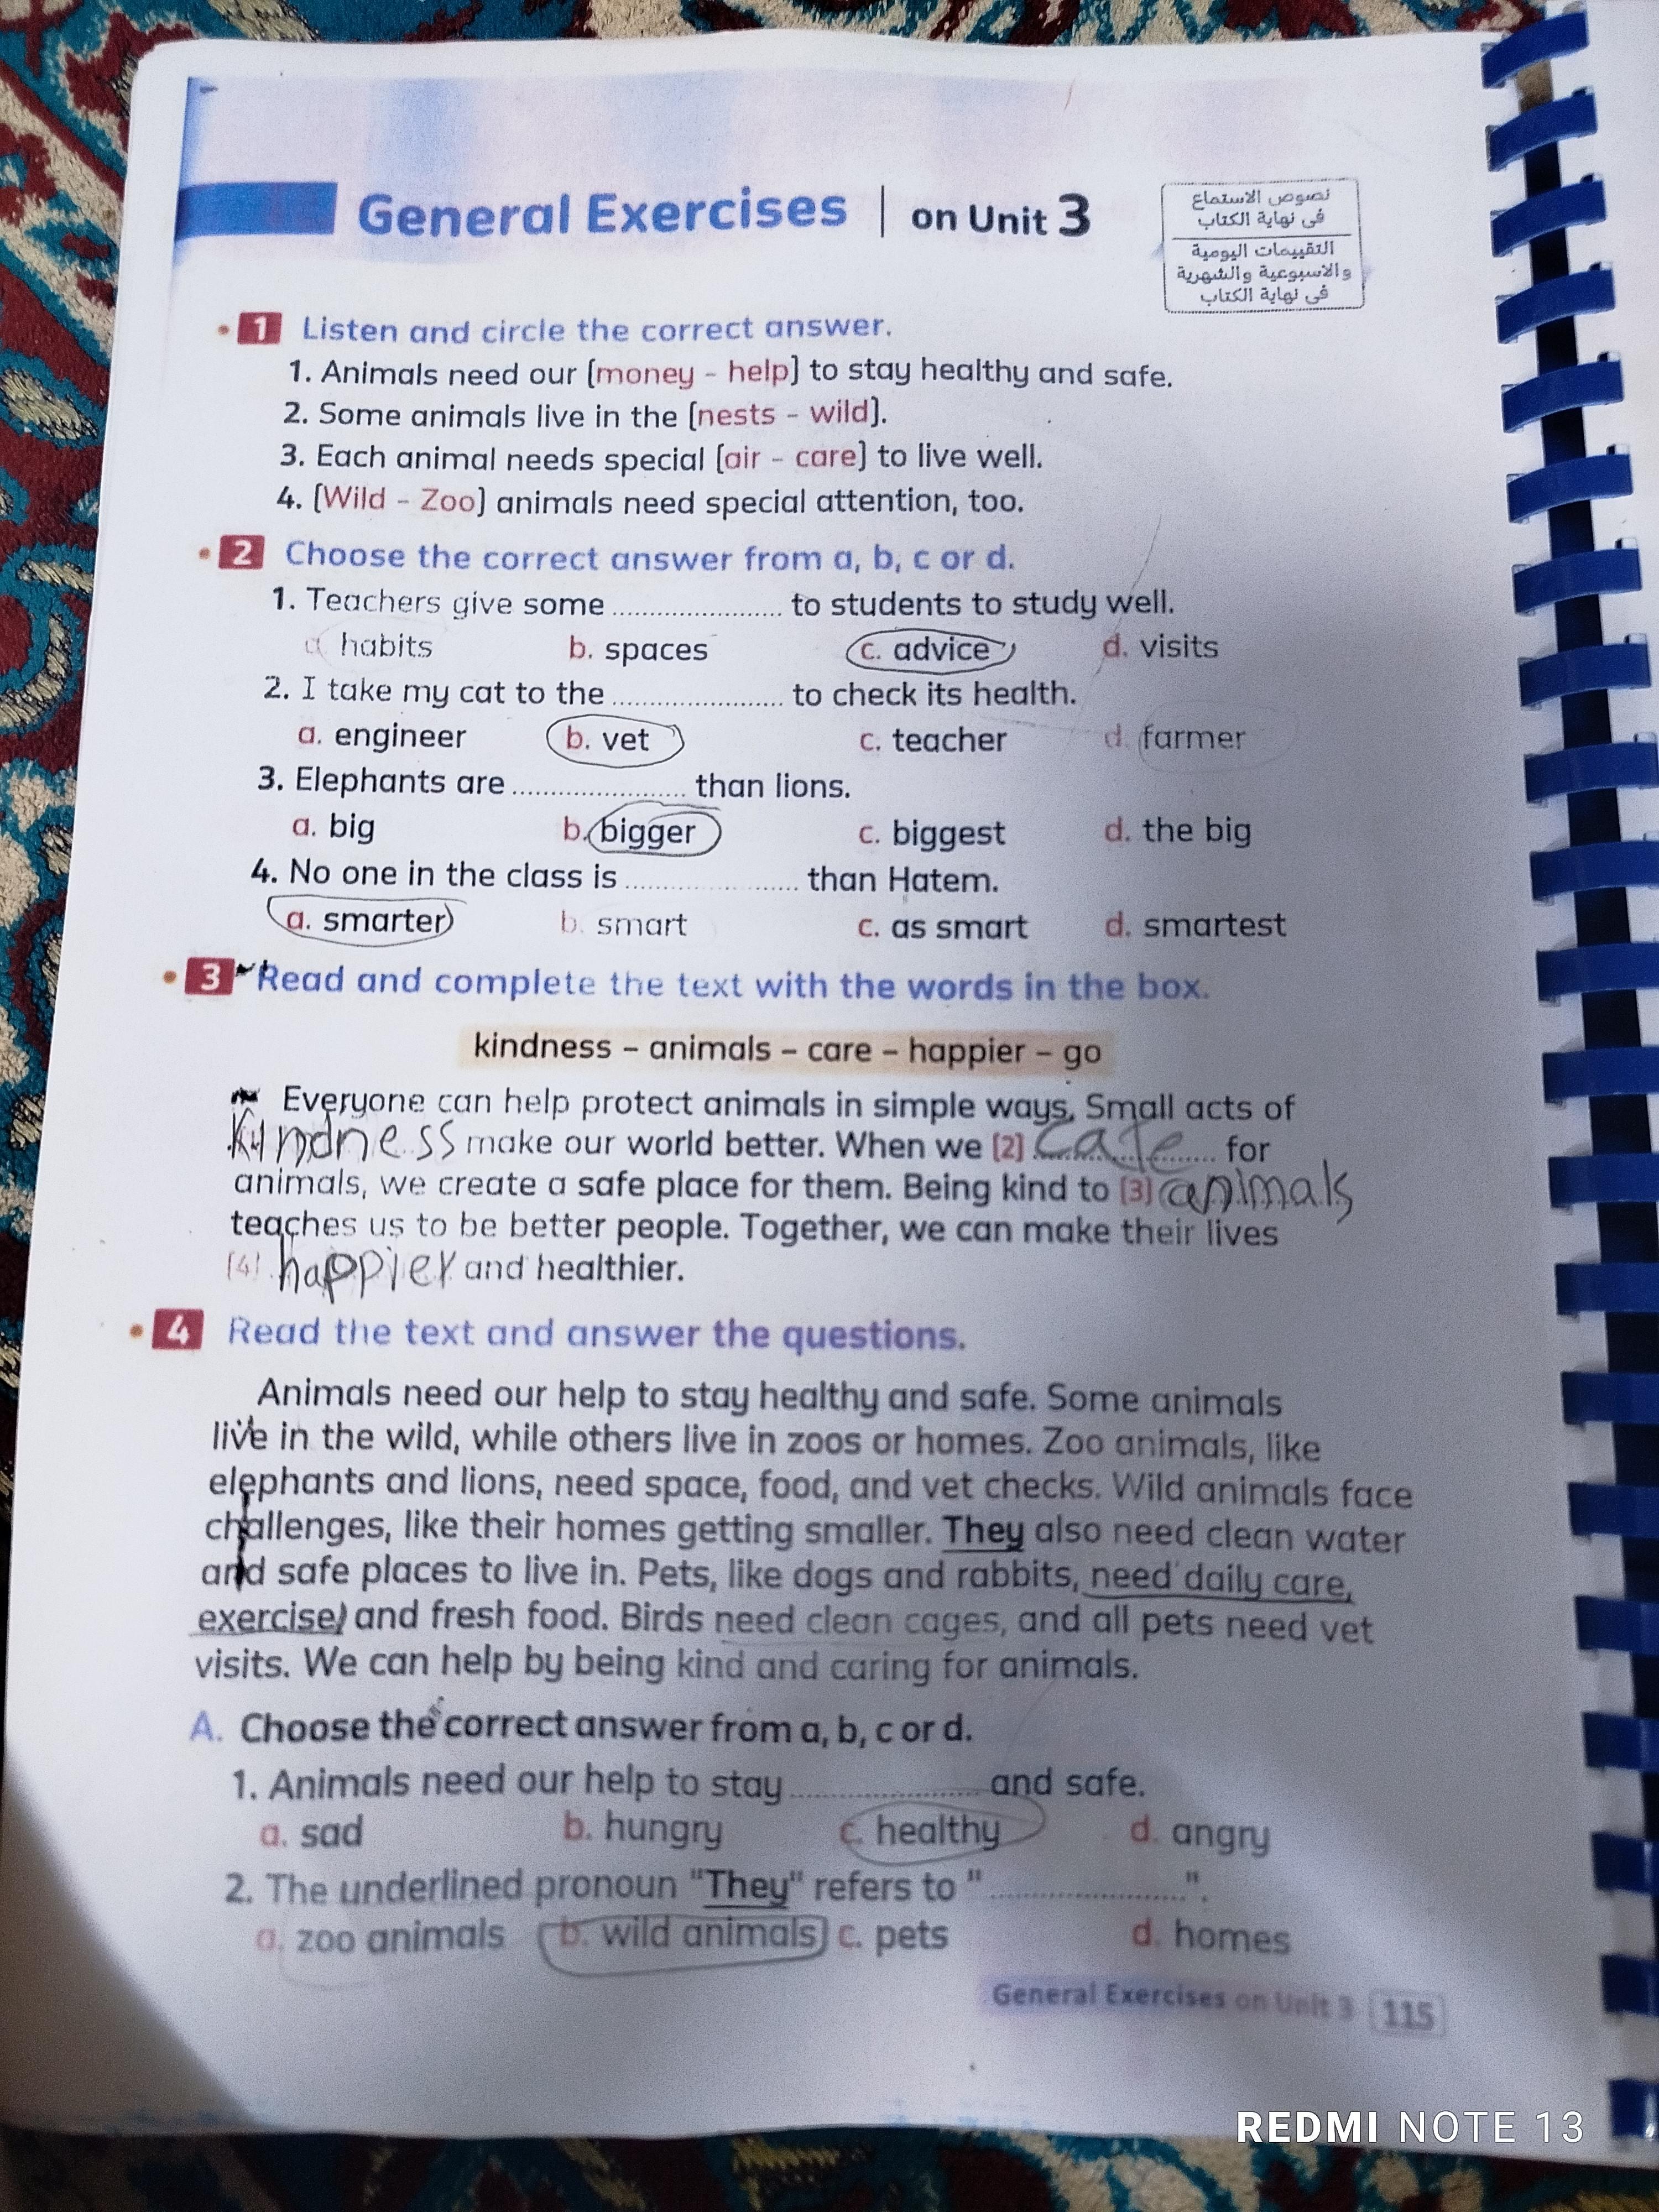 General Exercises | on Unit 3
نصوص الاستماع
فى نهاية الكتاب
التقييمات اليومية
والأسبوعية والشهرية
فى نهاية الكتاب
1 Listen and circle the correct answer.
1. Animals need our (money - help) to stay healthy and safe.
2. Some animals live in the (nests - wild).
3. Each animal needs special (air - care) to live well.
4. (Wild - Zoo) animals need special attention, too.
2 Choose the correct answer from a, b, c or d.
1. Teachers give some ........................ to students to study well.
a. habits b. spaces c. advice d. visits
2. I take my cat to the ........................ to check its health.
a. engineer b. vet c. teacher d. farmer
3. Elephants are ........................ than lions.
a. big b. bigger c. biggest d. the big
4. No one in the class is ........................ than Hatem.
a. smarter b. smart c. as smart d. smartest
3 Read and complete the text with the words in the box.
kindness – animals – care – happier – go
Everyone can help protect animals in simple ways. Small acts of
kindness make our world better. When we (2) care for
animals, we create a safe place for them. Being kind to (3) animals
teaches us to be better people. Together, we can make their lives
(4) happier and healthier.
4 Read the text and answer the questions.
Animals need our help to stay healthy and safe. Some animals
live in the wild, while others live in zoos or homes. Zoo animals, like
elephants and lions, need space, food, and vet checks. Wild animals face
challenges, like their homes getting smaller. They also need clean water
and safe places to live in. Pets, like dogs and rabbits, need daily care,
exercise, and fresh food. Birds need clean cages, and all pets need vet
visits. We can help by being kind and caring for animals.
A. Choose the correct answer from a, b, c or d.
1. Animals need our help to stay ........................ and safe.
a. sad b. hungry c. healthy d. angry
2. The underlined pronoun "They" refers to "........................".
a. zoo animals b. wild animals c. pets d. homes
General Exercises on Unit 3 115
REDMI NOTE 13